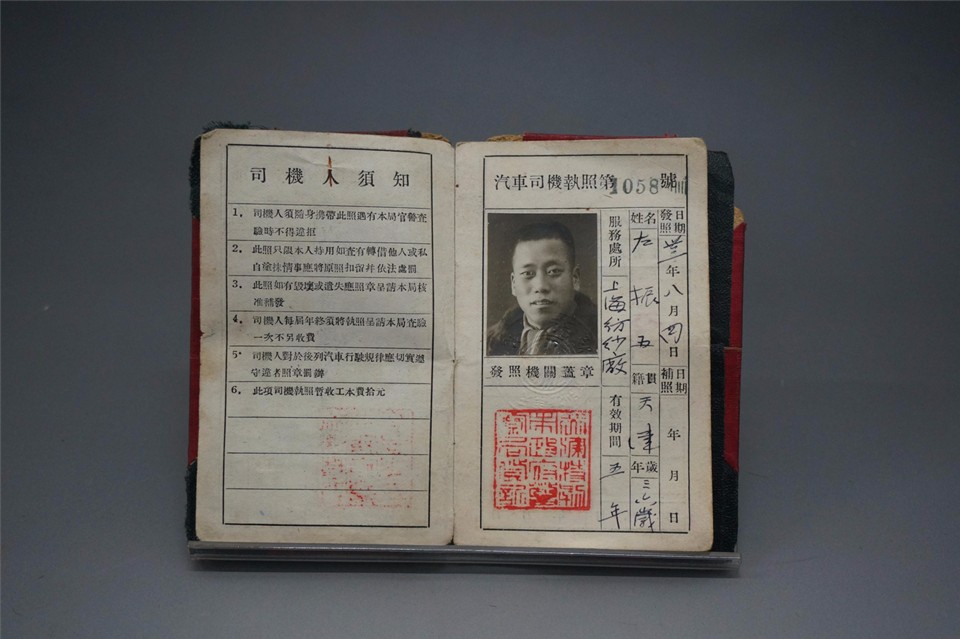 司機人須知
1. 司機人須隨身攜帶此照遇有本局官警查
驗時不得違拒
2. 此照只領本人持用如查有轉借他人或私
自塗抹情事應將原照扣留并依法處罰
3. 此照如有毀壞或遺失應照章呈請本局核
准補發
4. 司機人每屆年終須將執照呈請本局查驗
一次不另收費
5. 司機人對於後列汽車行駛規律應切實遵
守違者照章罰辦
6. 此項司機執照暫收工本費拾元
汽車司機執照第1058號
發照日期
卅三年八月四日
補照日期
年月日
姓名
左振五
籍貫
天津
年歲
三八歲
服務處所
上海紡紗廠
有效期間
五年
發照機關蓋章